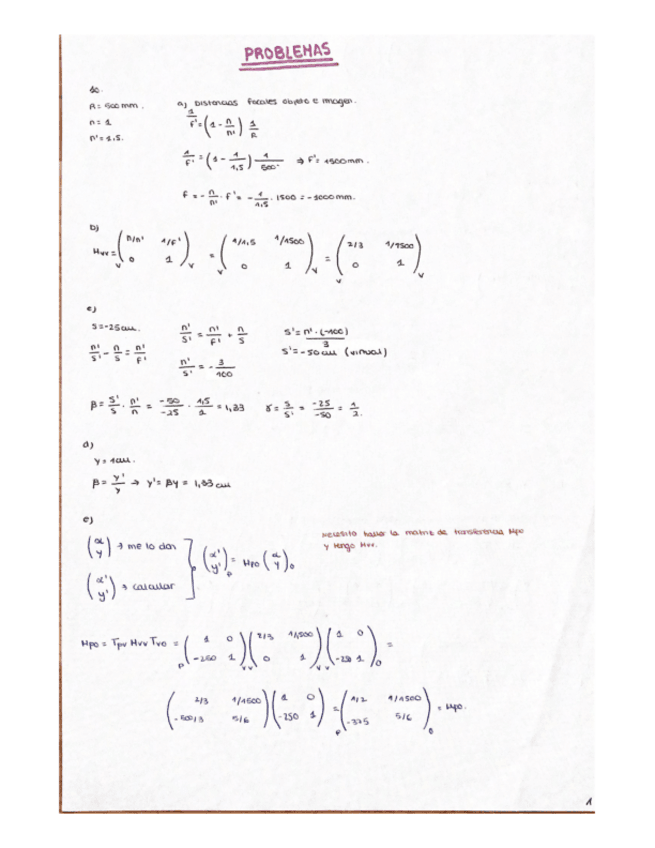 PROBLEMAS
R = 500 mm.
n = 1
n' = 1,5.
a) Distancias focales objeto e imagen.
1/f' = (1 - n/n') 1/R
1/f' = (1 - 1/1,5) 1/500 ⇒ f' = 1500 mm.
f = - n/n' · f' = - 1/1,5 · 1500 = -1000 mm.
b)
Hvv = (n/n' 1/f' ; 0 1) = (1/1,5 1/1500 ; 0 1) = (2/3 1/1500 ; 0 1)
c)
s = -25 cm.
n'/s' - n/s = n'/f'
n'/s' = n'/f' + n/s
n'/s' = - 3/100
s' = n' · (-100)/3
s' = -50 cm (virtual)
β = s'/s · n'/n = -50/-25 · 1,5/1 = 1,33
γ = s/s' = -25/-50 = 1/2.
d)
y = 1cm.
β = y'/y → y' = βy = 1,33 cm
e)
(α ; y) → me lo dan
(α' ; y') → calcular
(α' ; y')p = Hpo (α ; y)o
Necesito hallar la matriz de transferencia Hpo
y tengo Hvv.
Hpo = Tpv Hvv Tvo = (1 0 ; -250 1) (2/3 1/1500 ; 0 1) (1 0 ; -250 1) =
(2/3 1/1500 ; -500/3 5/6) (1 0 ; -250 1) = (1/2 1/1500 ; -375 5/6) = Hpo.
1